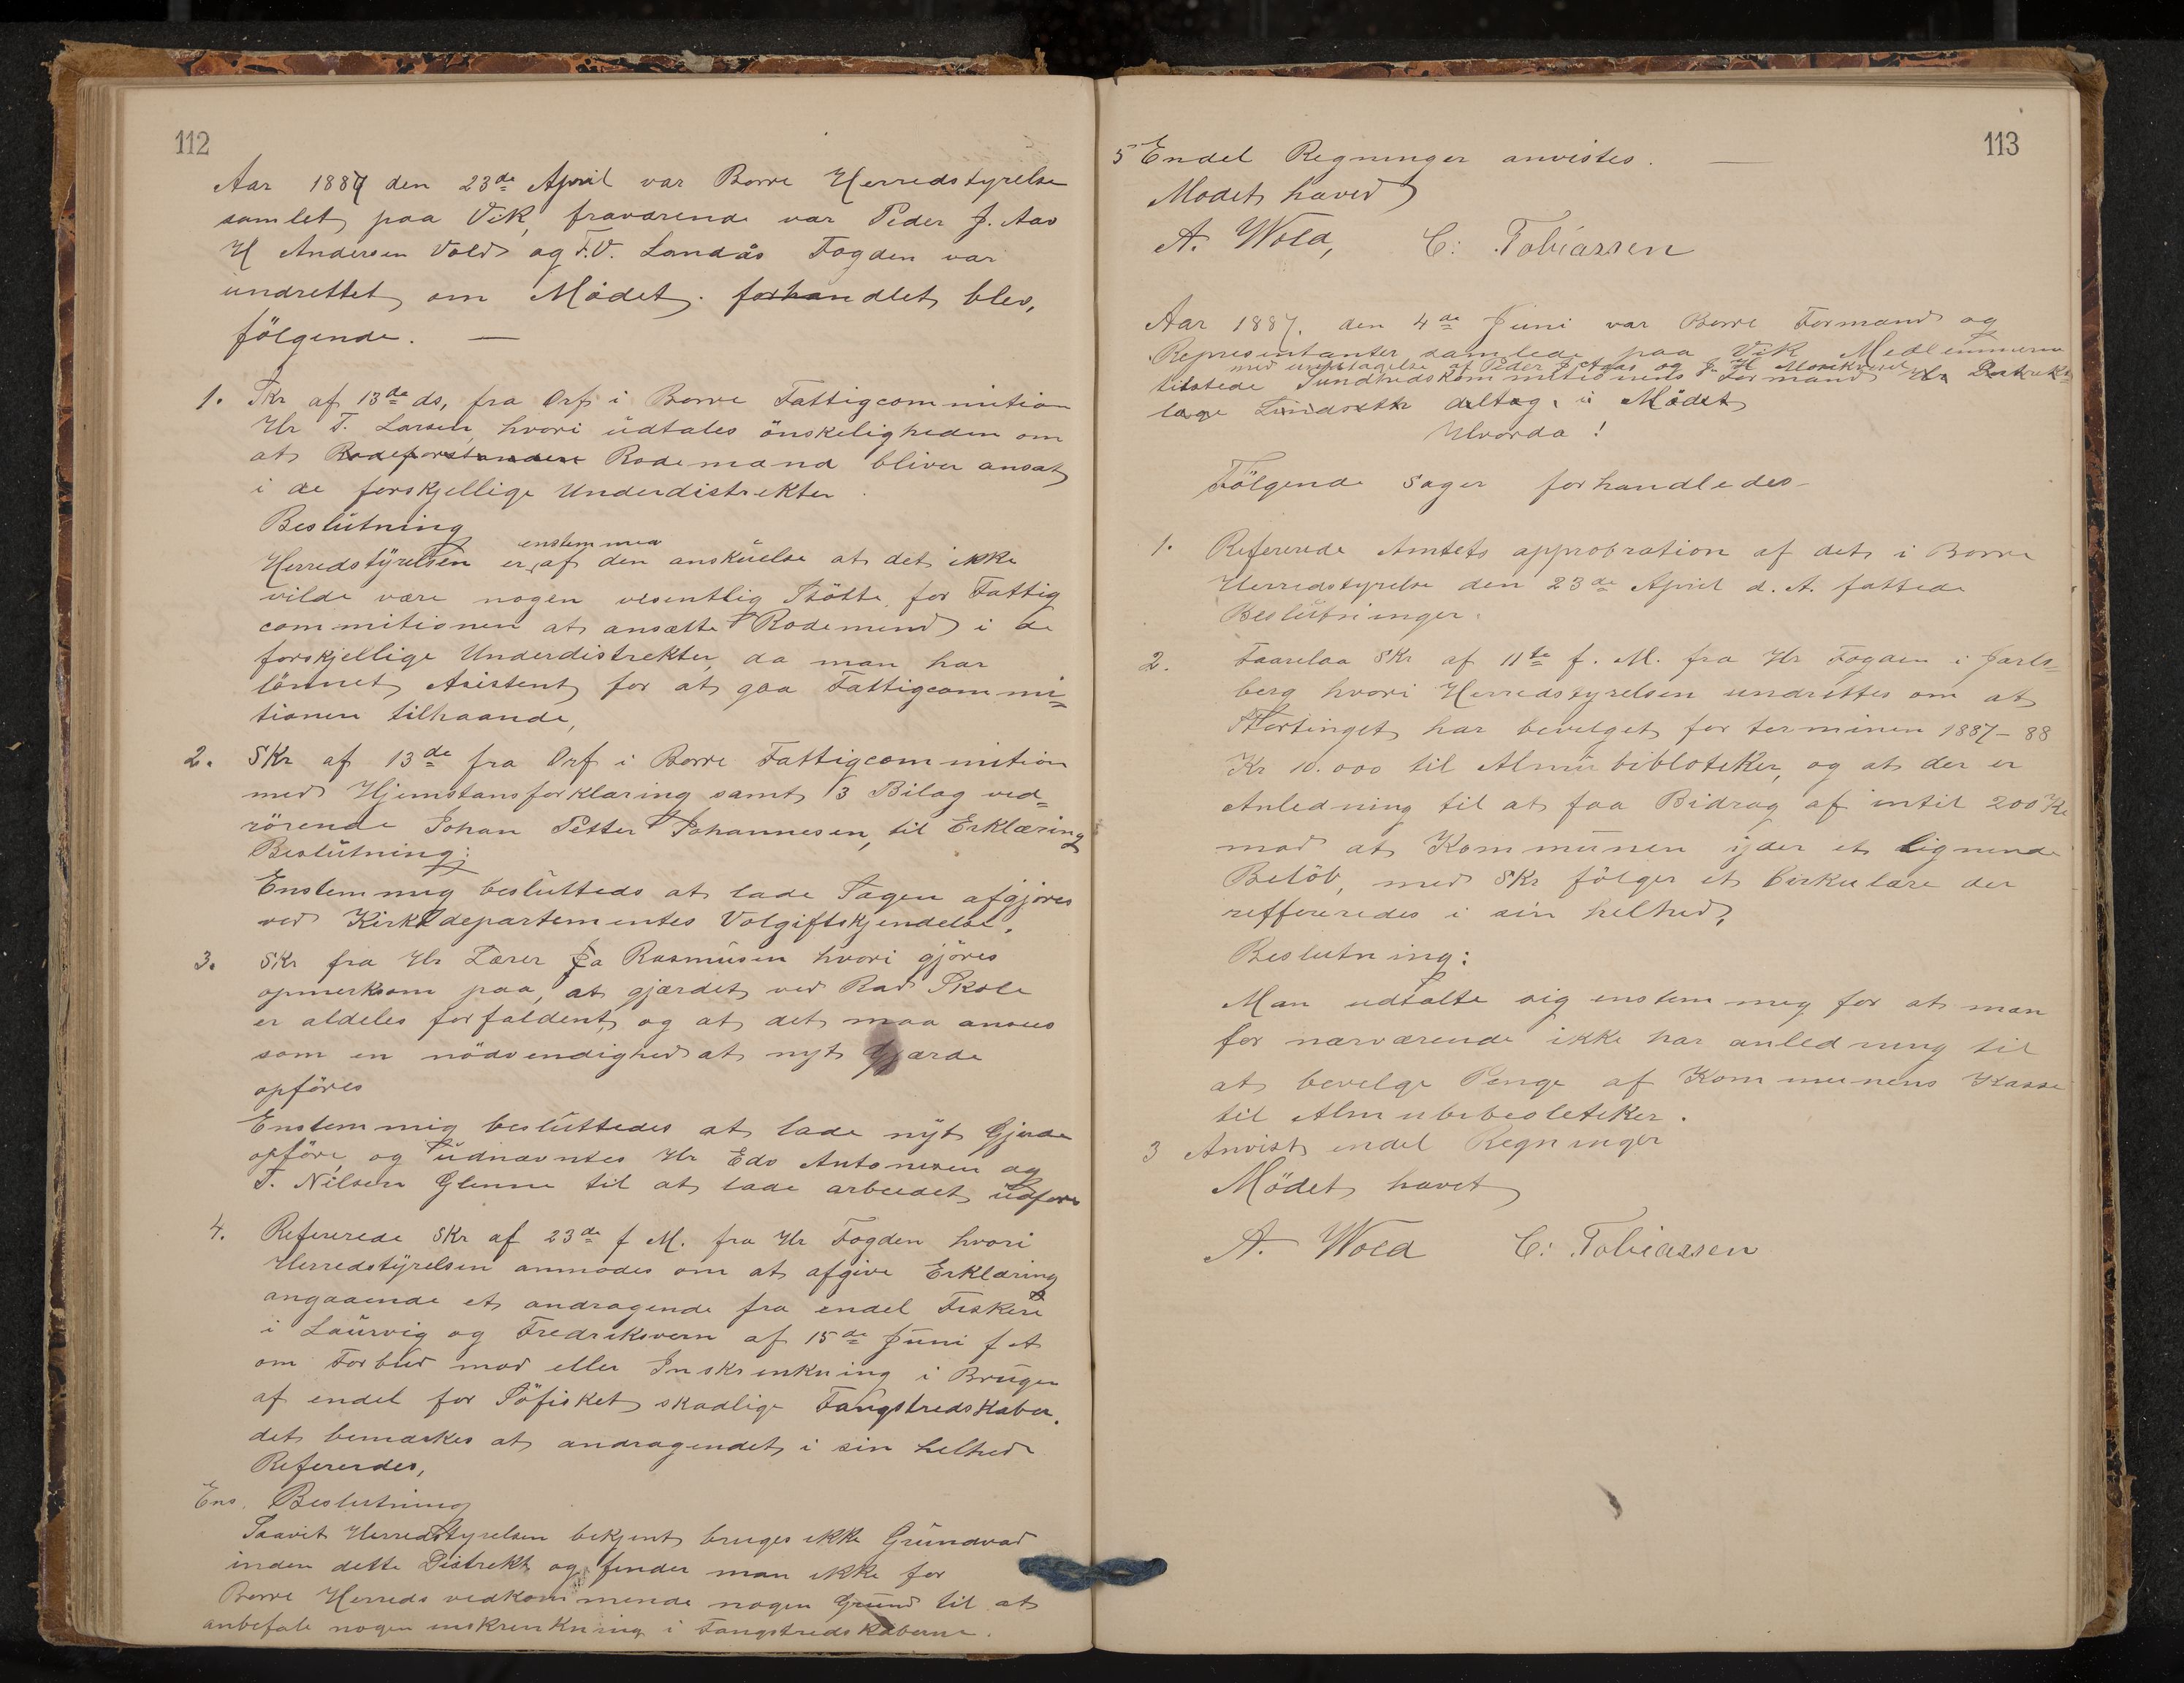 112
Aar 1887 den 23de April var Borre Herredstyrelse
samlet paa Vik, fraværende var Peder J. Aas
H Andersen Vold og F.V. Landås Fogden var
undrettet om Mödet. forhandlet blev,
fölgende. —
1. Skr af 13de ds, fra Orf i Borre Fattigcommition
Hr T. Larsen, hvori udtales önskeligheden om
at Rodeforstandere Rodemand bliver ansat
i de forskjellige Underdistrekter.
Beslutning
enstemmea
Herredstyrelsen er af den anskuelse at det ikke
vilde være nogen vesentlig Stötte for Fattig
commitionen at ansætte Rodemend i de
forskjellige Underdistrekter, da man har
lönnet Asistent for at gaa Fattigcommi=
tionen tilhaande,
2. Skr af 13de fra Orf i Borre Fattigcommition
med Hjemstansforklaring samt 3 Bilag ved=
rörende Johan Petter Johannesen, til Erklæring
Beslutning:
Enstemmig beslutteds at lade Sagen afgjöres
ved Kirkedepartementes Volgiftskjendelse.
3. Skr fra Hr Lærer Ja Rasmusen hvori gjöres
opmerksom paa, at gjærdet ved Rad Skole
er aldeles forfaldent, og at det maa ansees
som en nödvendighed at nyt Gjærde
opföres
Enstemmig besluttedes at lade nyt Gjerde
opföre, og udnævntes Hr Edv Antonesen og
T. Nilsen Glenne til at lade arbeidet udföre
4. Refererede Skr af 23de f M. fra Hr Fogden hvori
Herredstyrelsen anmodes om at afgive Erklæring
angaaende et andragende fra endel Fiskere
i Laurvig og Fredriksvern af 15de Juni f A
om Forbud mod eller Inskrenkning i Brugen
af endel for Söfisket skadlige Fangstredskaber.
det bemærkes at andragendet i sin helhed
Refererdes,
Ens. Beslutning
Saavit Herredstyrelsen bekjent bruges ikke Grundvad
inden dette Distrekt og finder man ikke for
Borre Herreds vedkommende nogen Grund til at
anbefale nogen inskrenkning i Fangstredskaberne.
113
5 Endel Regninger anvistes. —
Modet haved
A. Wold, C: Tobiassen
Aar 1887. den 4de Juni var Borre Formand og
Representanter samlede paa Vik Medlemmerne
med undtagelse af Peder J. Aas og J. H.
tilstede Sundhedskommitionens Formand Hr Destrekts
læge Lindseth deltog i Mödet
Hvorda!
Fölgende Sager forhandledes-
1. Refererede Amtets approbration af det i Borre
Herredstyrelse den 23de April d. A. fattede
Beslutninger.
2. Faarelaa Skr af 11te f. M. fra Hr Fogden i Jarls=
berg hvori Herredstyrelsen undrettes om at
Stortinget har bevelget for terminen 1887-88
Kr 10.000 til Almubibloteker, og at der er
Anledning til at faa Bidrag af intil 200 Kr
mod at Kommunen yder et lignende
Belöb, med Skr fölger et Cirkulære der
reffereredes i sin helhed,
Beslutning:
Man udtalte sig enstemmeg for at man
for nærværende ikke har anledning til
at bevelge Penge af Kommunens Kasse
til Almubibeoleteker.
3 Anvist endel Regninger
Mödet havet
A. Wold C: Tobiassen